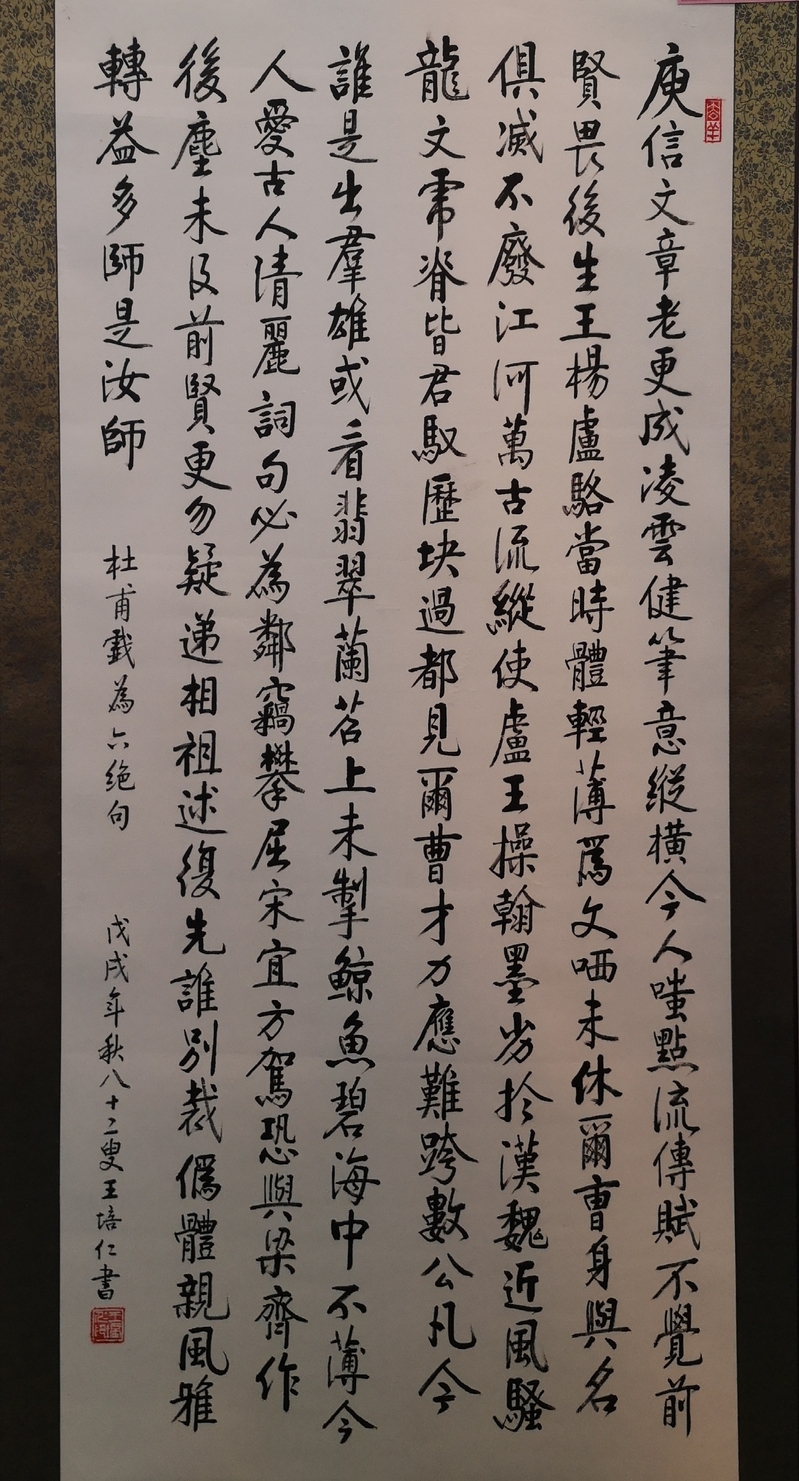 庾信文章老更成凌雲健筆意縱橫今人嗤點流傳賦不覺前
賢畏後生王楊盧駱當時體輕薄為文哂未休爾曹身與名
俱滅不廢江河萬古流縱使盧王操翰墨劣於漢魏近風騷
龍文虎脊皆君馭歷块過都見爾曹才力應難跨數公凡今
誰是出羣雄或看翡翠蘭苕上未掣鯨魚碧海中不薄今
人愛古人清麗詞句必為鄰竊攀屈宋宜方駕恐與梁齊作
後塵未及前賢更勿疑递相祖述復先誰別裁偽體親風雅
轉益多師是汝師
杜甫戲為六绝句
戊戌年秋八十二叟王培仁書